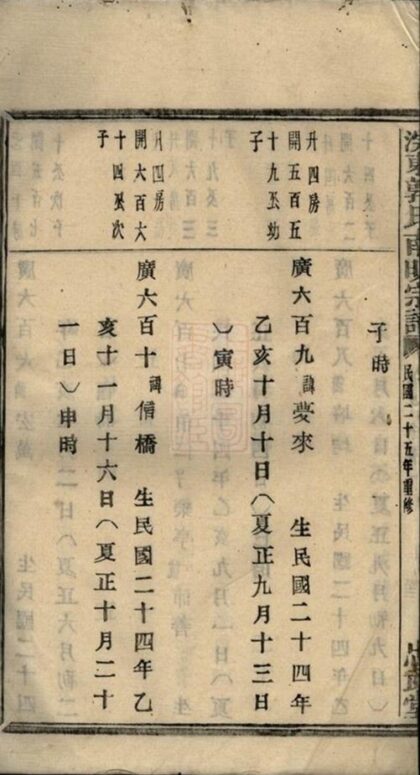 宗譜
民國二十五年重修
子時
升四房
開五百五
十九丞幼
子
廣六百九諱夢來 生民國二十四年
乙亥十月十日(夏正九月十三日
)寅時
升四房
開六百六
十四丞次
子
廣六百十諱僧橋 生民國二十四年乙
亥十一月十六日(夏正十月二十
一日)申時